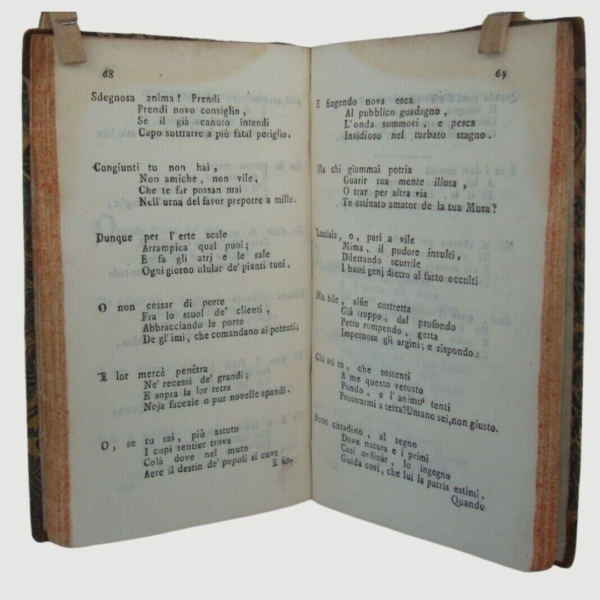 68
Sdegnosa anima! Prendi
Prendi novo consiglio,
Se il già canuto intendi
Capo sottrarre a più fatal periglio.
Congiunti tu non hai,
Non amiche, non vile,
Che te far possan mai
Nell'urna del favor preporre a mille.
Dunque per l'erte scale
Arrampica qual puoi;
E fa gli atrj e le sale
Ogni giorno ulular de' pianti tuoi.
O non cessar di porte
Fra lo stuol de' clienti,
Abbracciando le porte
De gl'imi, che comandano ai potenti;
E lor mercè penétra
Ne' recessi de' grandi;
E sopra la lor tetra
Noja facezie o pur novelle spandi.
O, se tu sai, più astuto
I cupi sentier trova
Colà dove nel muto
Aere il destin de' popoli si cova;
E fin-
69
E fingendo nova esca
Al pubblico guadagno,
L'onda sommovi, e pesca
Insidioso nel turbato stagno.
Ma chi giammai potria
Guarir tua mente illusa,
O trar per altra via
Te ostinato amator de la tua Musa?
Lasciala, o, pari a vile
Mima, il pudore insulti,
Dilettando scurrile
I bassi genj dietro al fasto occulti
Ma bile, alfin costretta
Già troppo, dal profondo
Petto rompendo, getta
Impetuosa gli argini; e rispondo:
Chi sei tu, che sostenti
A me questo vetusto
Pondo, e l'animo tenti
Prostrarmi a terra? Umano sei, non giusto.
Buon cittadino, al segno
Dove natura e i primi
Casi ordinàr, lo ingegno
Guida così, che lui la patria estimi.
Quando